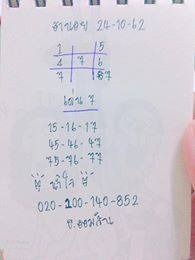 ฮานอย 24-10-62
1 5
4 7 6
7 87
เด่น 7
15-16-17
45-46-47
75-76-77
เข้าใจ
020-200-140-852
อ.ออมสิน